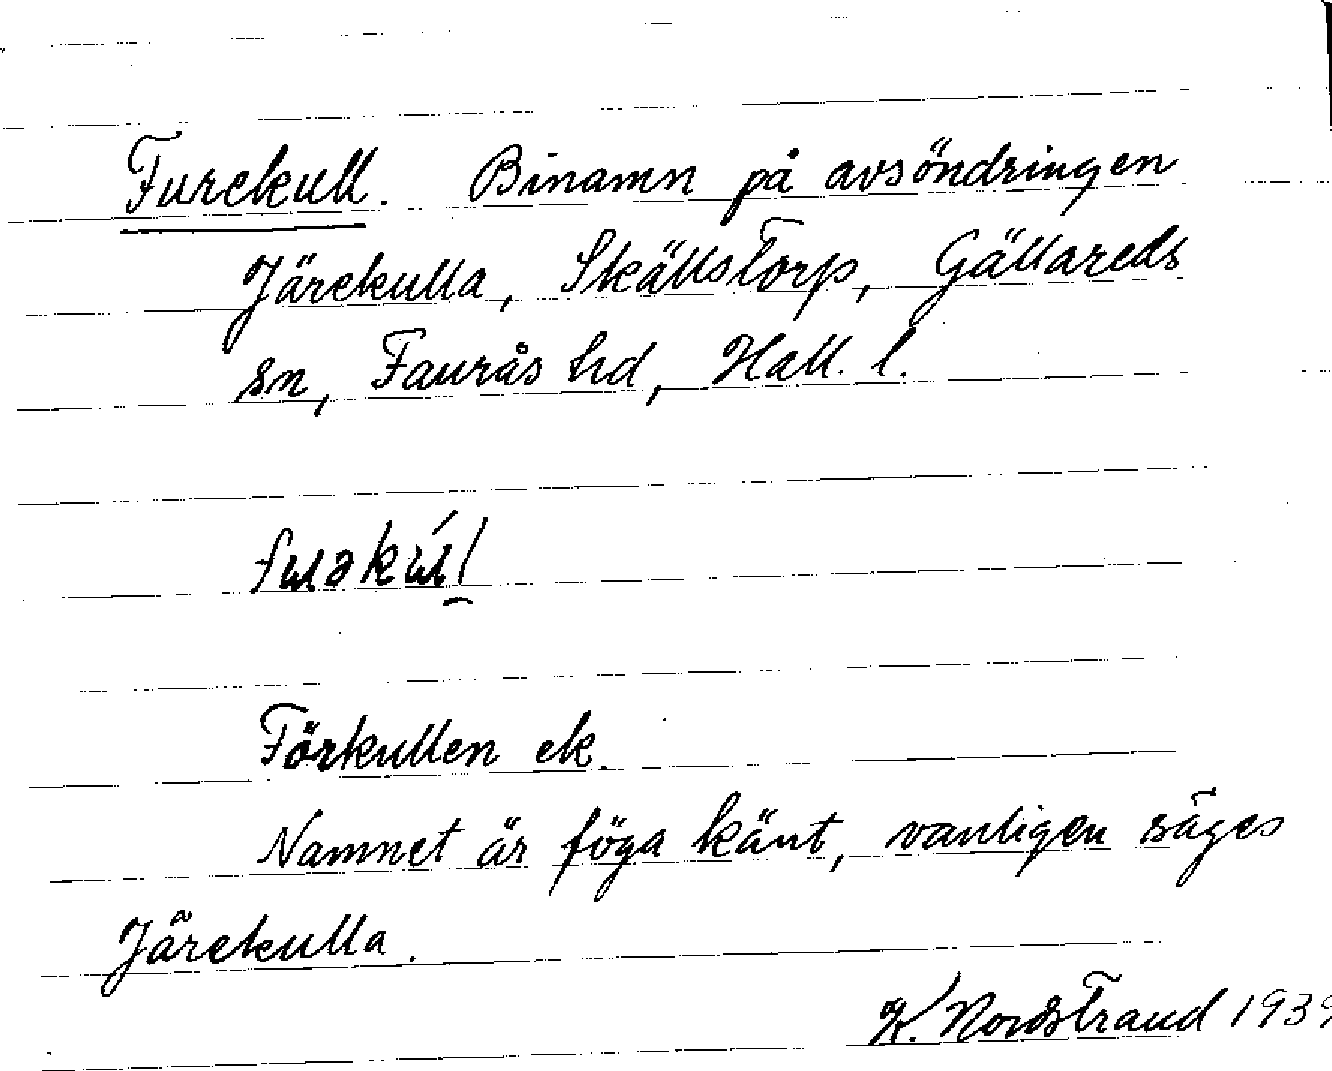 Furekull. Binamn på avsöndringen
Järekulla, Skällstorp, Gällareds
sn, Faurås hd, Hall. l.
Förkullen ek.
Namnet är föga känt, vanligen säges
Järekulla.
K. Nordstrand 1939